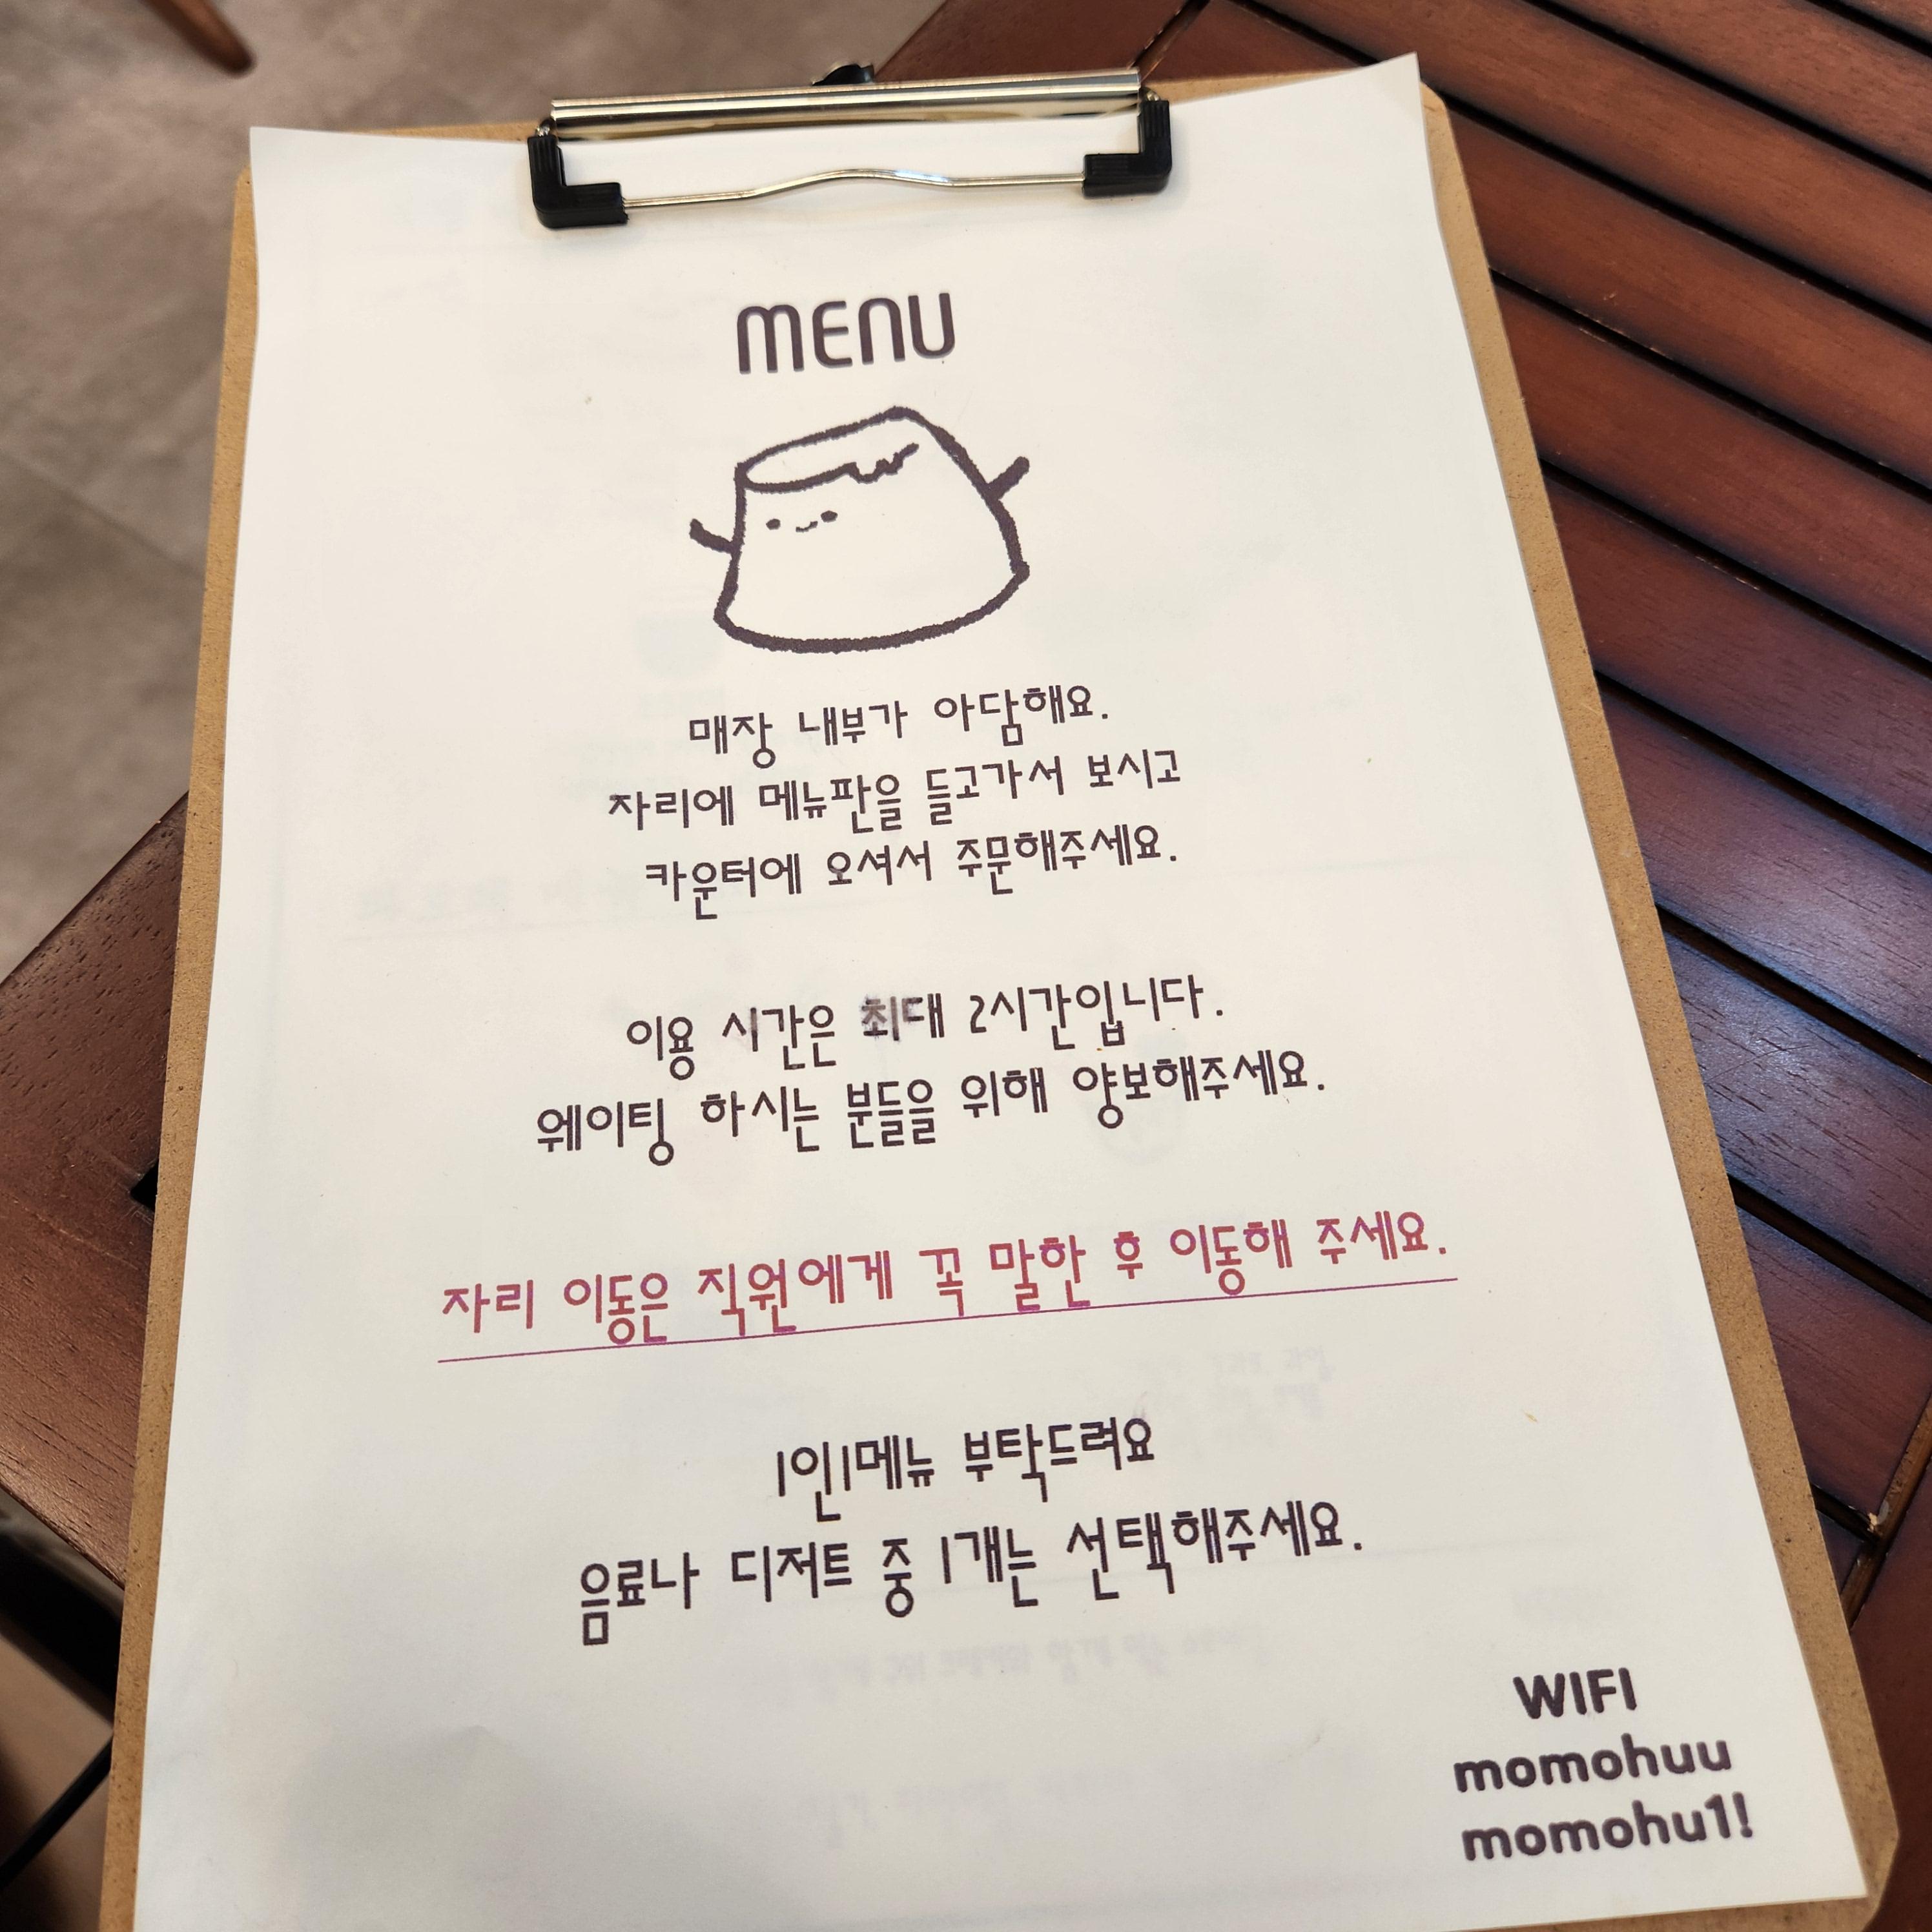 MENU
매장 내부가 아담해요.
자리에 메뉴판을 들고가서 보시고
카운터에 오셔서 주문해주세요.
이용 시간은 최대 2시간입니다.
웨이팅 하시는 분들을 위해 양보해주세요.
자리 이동은 직원에게 꼭 말한 후 이동해 주세요.
1인1메뉴 부탁드려요
음료나 디저트 중 1개는 선택해주세요.
WIFI
momohuu
momohu1!